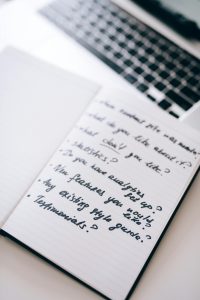 When current site was made?
- What do you like about it?
- What don't you like?
- Statistics?
- Do you have analytics
set up?
- New features you would
like?
- Any existing style guide?
- Testimonials?